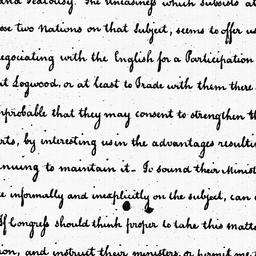 and Jealousy. The Uneasiness which subsists at
ose two Nations on that Subject, seems to offer us
egociating with the English for a Participation
ut Logwood, or at least to Trade with them there
mprobable that they may consent to strengthen th
orts, by interesting us in the advantages resulti
nuing to maintain it_ To sound their Minist
e informally and inexplicitly on the subject, can
If Congress should think proper to take this matte
ion, and instruct their ministers or permit me